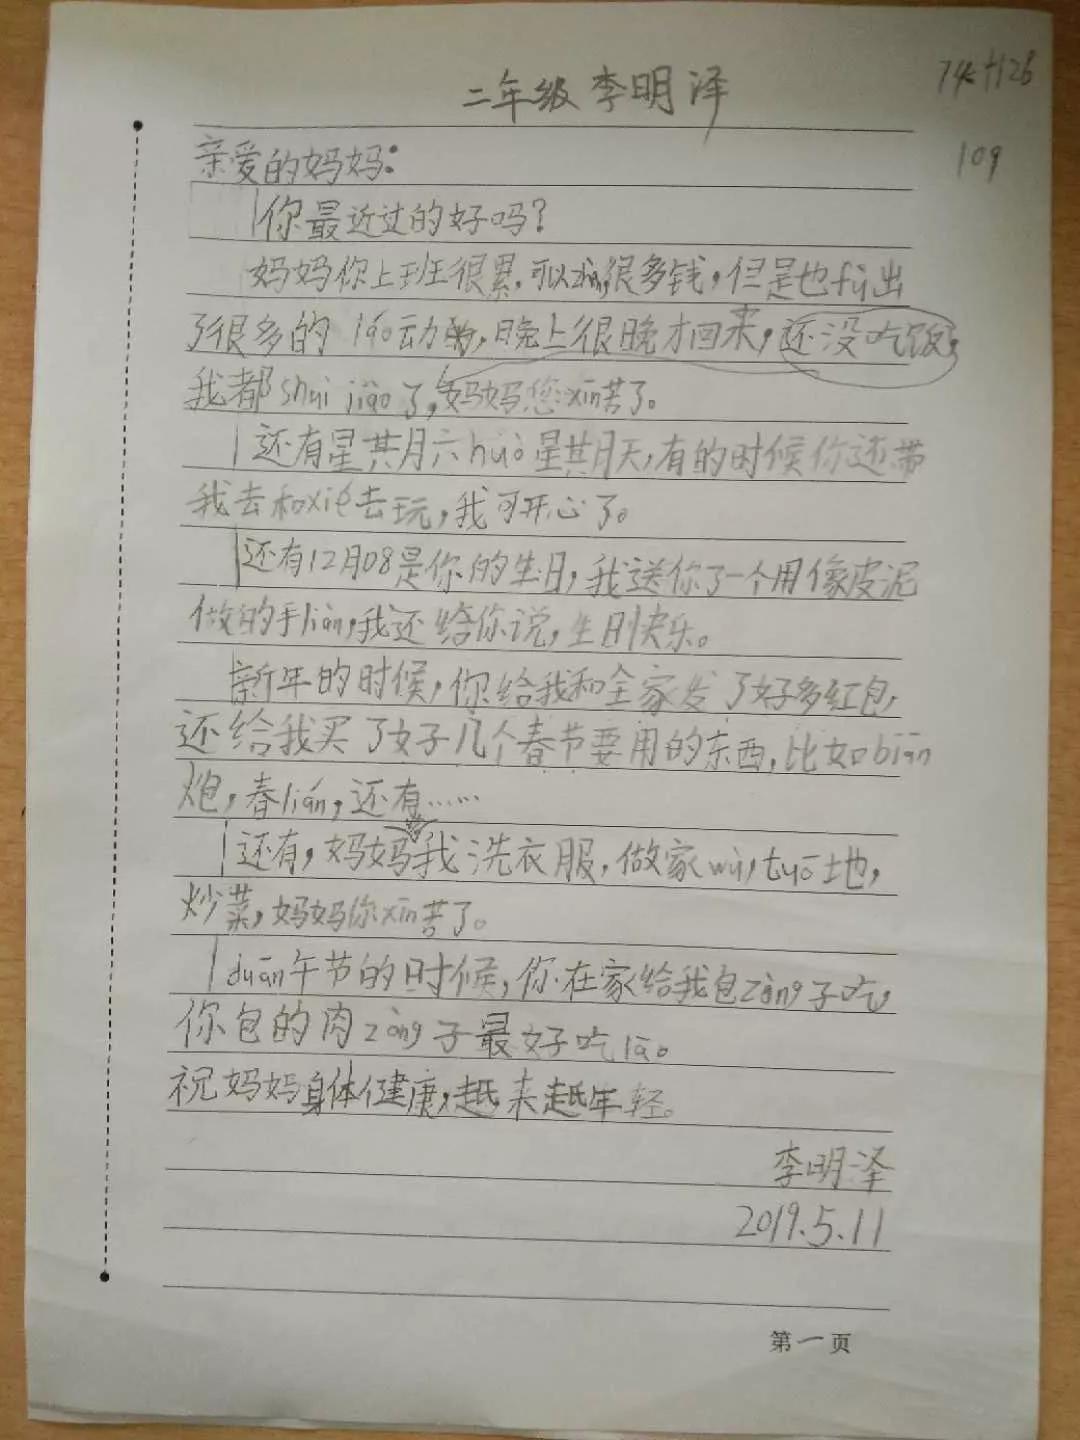 二年级 李明泽
109
亲爱的妈妈:
你最近过的好吗?
妈妈你上班很累,可以很多钱,但是也fù出
了很多的láo动,晚上很晚才回来,还没吃饭,
我都shuì jiào了,妈妈您xīn苦了。
还有星其月六huò星其月天,有的时候你还带
我去和xié去玩,我可开心了。
还有12月08是你的生日,我送你了一个用像皮泥
做的手liàn,我还给你说,生日快乐。
新年的时候,你给我和全家发了好多红包,
还给我买了好几个春节要用的东西,比如biān
炮,春lián,还有……
还有,妈妈我洗衣服,做家wù,tuō地,
炒菜,妈妈你xīn苦了。
duān午节的时候,你在家给我包zòng子吃,
你包的肉zòng子最好吃la。
祝妈妈身体健康,越来越年轻。
李明泽
2019.5.11
第一页